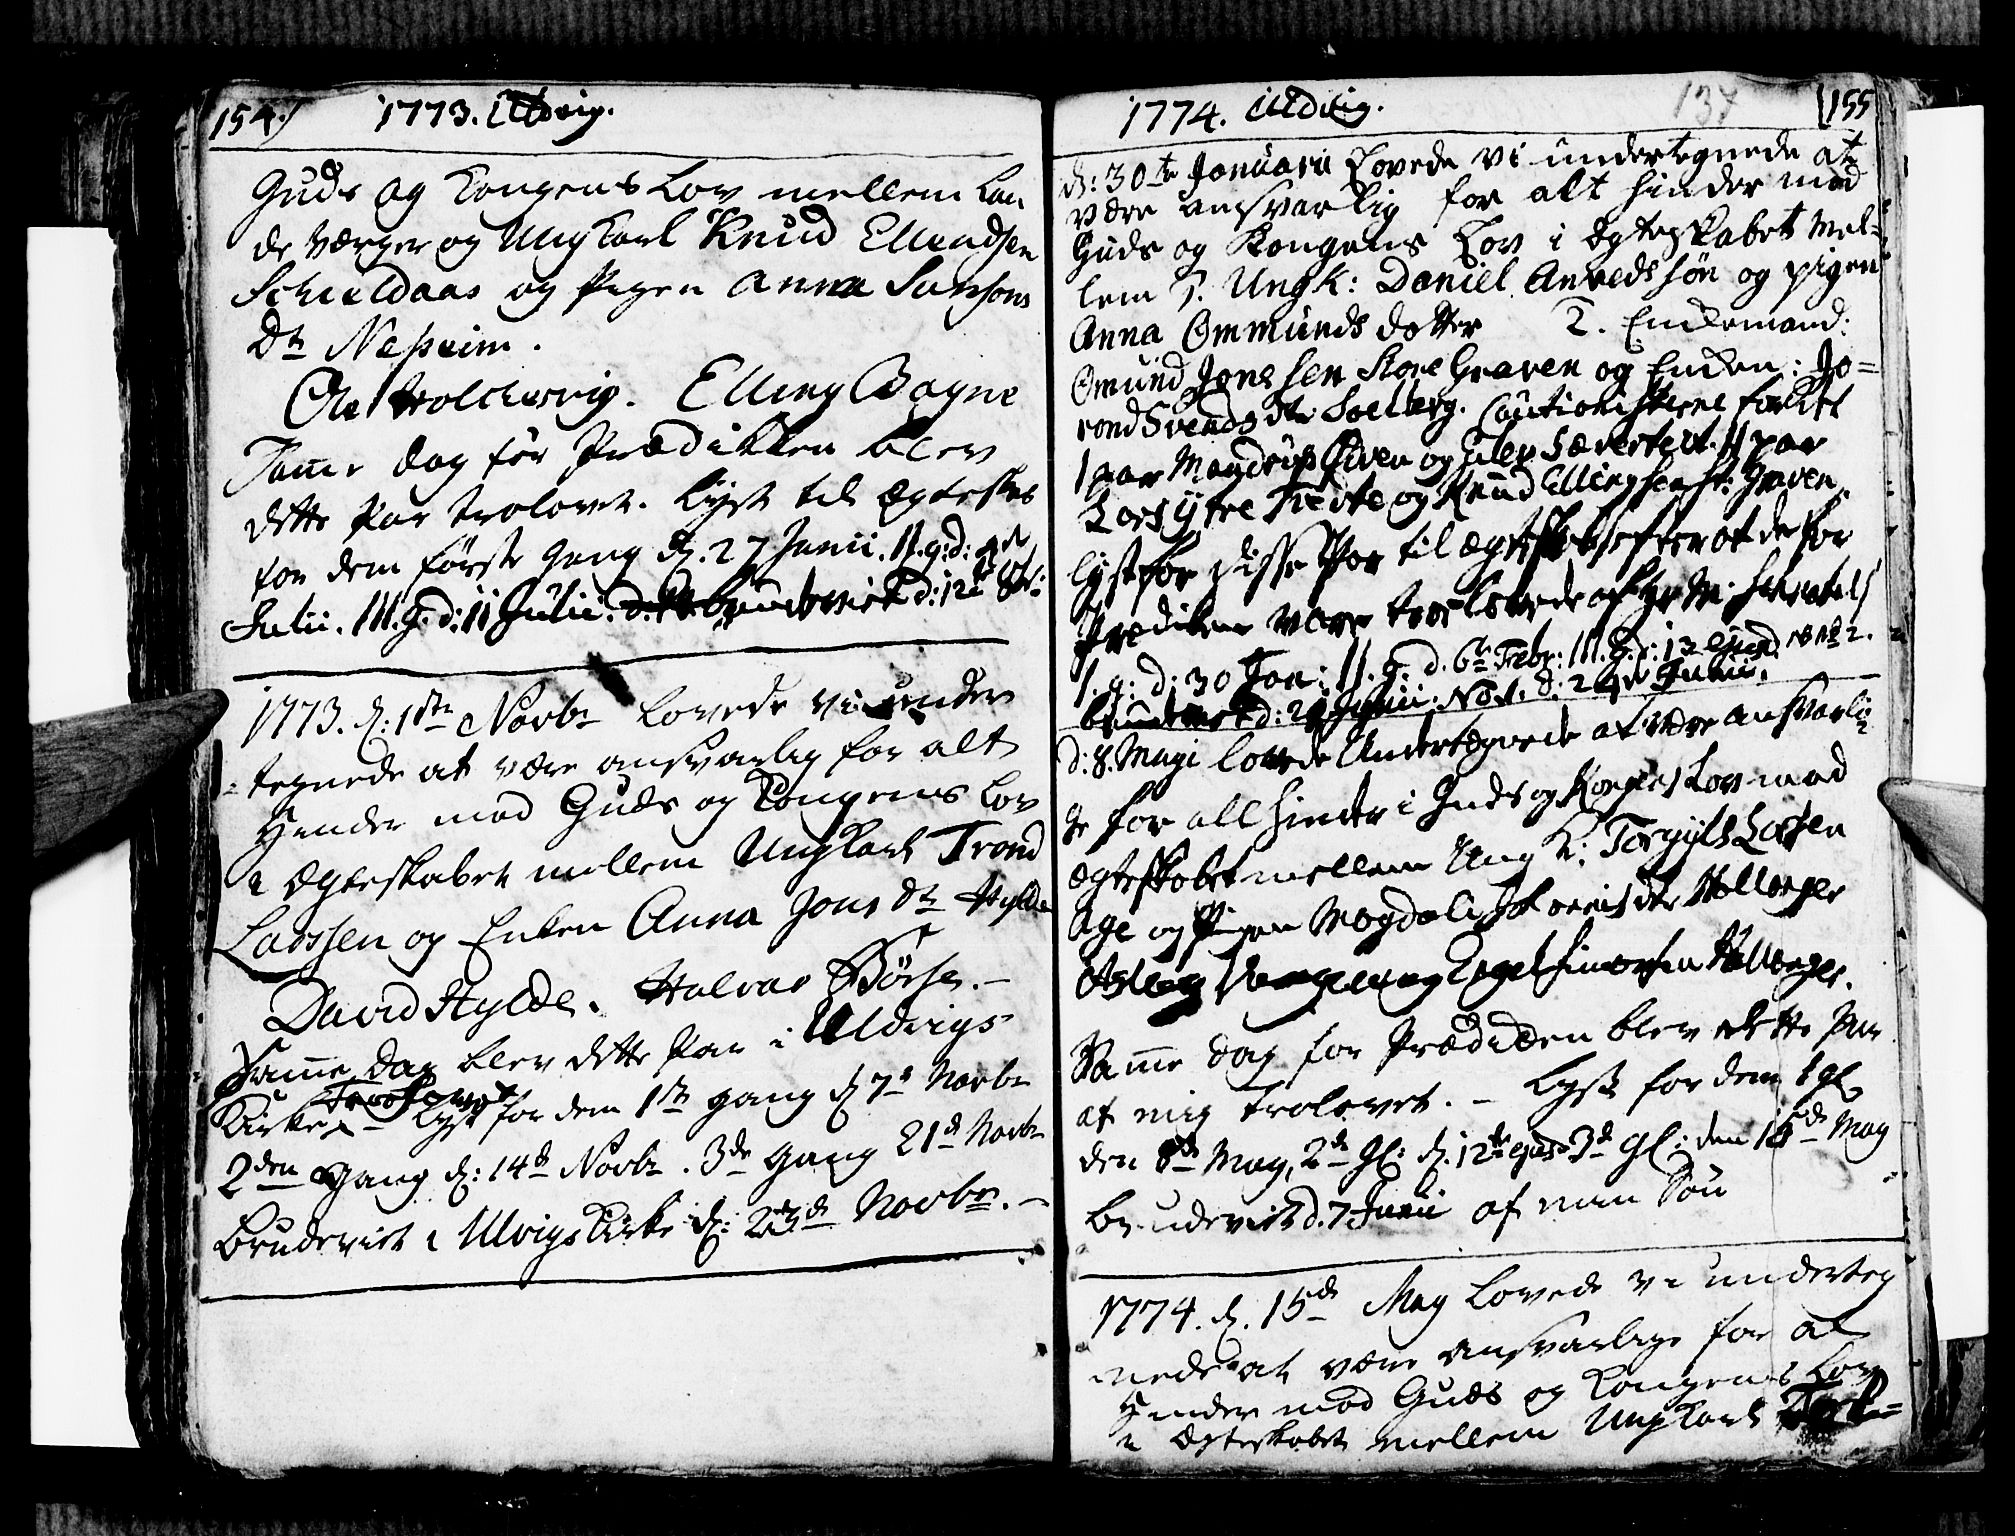 154.) 1773. Uldvig.
Guds og Kongens Lov mellem Lan
de Værger og UngKarl Knud Ellendsen
Schieldaas og Pigen Anna Samsons
Dtr Nesheim.
Ole Elling Bagne
Samme dag før Prædikken blev
dette Par trolovet. Lyst til Ægteskab
for dem første gang d. 27 Junii. II. g: d: 4de
Julii. III. g. d: 11 Julii. d: 12te
1773. d: 1ste Novbr lovede vi under
tegnede at være ansvarlig for alt
Hinder mod Guds og Kongens Lov
i Ægteskabet mellem UngKarl Trond
Larssen og Enken Anna Jons Dtr Hylde
David Hylde. Halvar Børse. -
Samme Dag blev dette Par i Uldvigs
Trolovet
Kirke - Lyst for dem 1te gang d. 7de Novbr
2den Gang d: 14de Novbr. 3de Gang 21de Novbr
Brudeviet i Ulvigs Kirke d: 23de Novbr. -
1774. Uldvig. 137 155
d: 30te Januarii Lovede vi undertegnede at
være ansvarlig for alt hinder mod
Guds og Kongens Lov i Egteskabet mel-
lem 1. UngK: Daniel Anvedssøn og pigen
Anna Ommunds dotter 2. Enkemand:
Omund Jonessen Store Graven og Enken: Jo-
rond Svends dtr Soelberg. Cautionisterne for det
1 par og II par
Lars ytre Tvedte og Knud Ellingsen St: Graven.
lyst for disse Par til ægteskab efter at de for
Prædiken vare trolovede af Hr M:
I. g: d: 30 Jan: II. g. d. 6te Febr: III. g. d: 13 ejusd. No 2.
brudeviet d: Junii. No 1. d: 24de Junii.
d: 8. Maji lovede Undertegnede at være ansvarli
ge for all hinder i Guds og Konges Lov mod
ægteskabet mellem Ung K: Torgyls Larsen
Age og Pigen Magdali dtr Hallanger
Hallanger.
Samme dag for Prædiken blev dette Par
af mig trolovet. - Lyst for dem 1 gl
den 8de May, 2de gl: d. 12te ejusd 3de gl: den 15de May
brudeviet d. 7 Junii af min Søn
1774. d. 15de May Lovede vi underteg
nede at være ansvarlige for al
Hinder mod Guds og Kongens Lov
i Ægteskabet mellem UngKarl